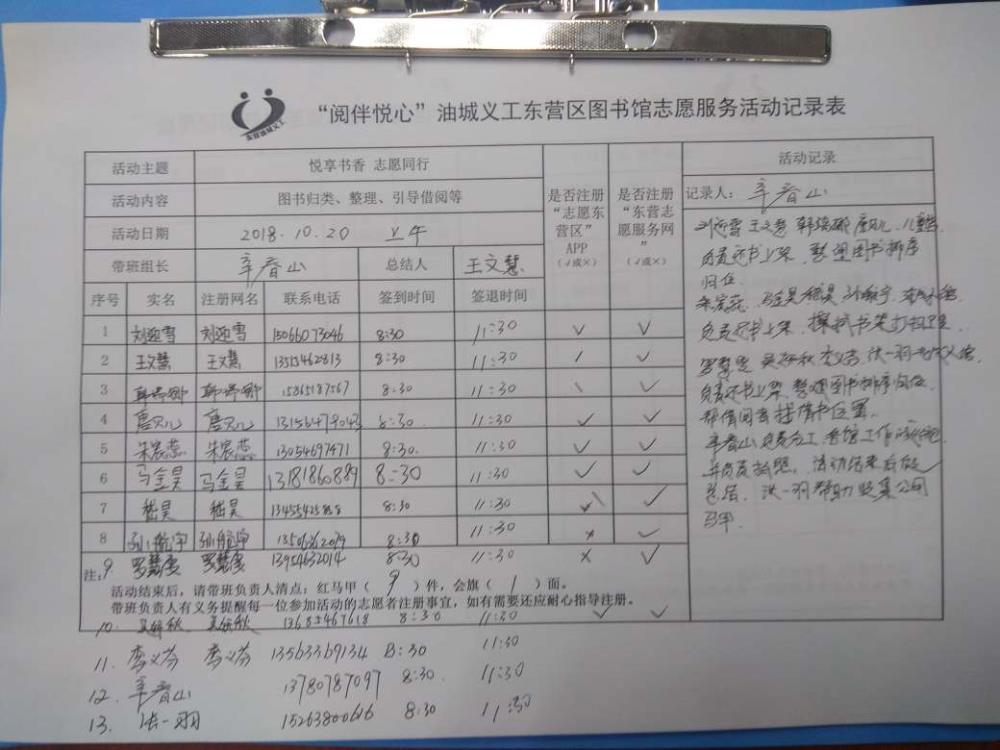 东营油城义工
“阅伴悦心”油城义工东营区图书馆志愿服务活动记录表
活动主题 悦享书香 志愿同行
活动内容 图书归类、整理、引导借阅等
活动日期 2018.10.20 上午
带班组长 辛春山 总结人 王文慧
是否注册“志愿东营区”APP（√或×）
是否注册“东营志愿服务网”（√或×）
序号 实名 注册网名 联系电话 签到时间 签退时间
1 刘迎雪 刘迎雪 15066073046 8:30 11:30 √ √
2 王文慧 王文慧 13515462813 8:30 11:30 √
3 8:30 11:30 √
4 唐贝儿 唐贝儿 8:30 11:30 √ √
5 朱宸蕊 朱宸蕊 13054697471 8:30. 11:30 √ √
6 马金昊 马金昊 13181860889 8:30 11:30 √ √
7 嵇昊 嵇昊 8:30 11:30 √
8 孙航宇 孙航宇 8:30 11:30 × √
9 罗慧雯 罗慧雯 13954632014 8:30 11:30 × √
注：
活动结束后，请带班负责人清点：红马甲（ 9 ）件，会旗（ 1 ）面。
带班负责人有义务提醒每一位参加活动的志愿者注册事宜，如有需要还应耐心指导注册。
10. 13685467618 8:30 11:30 √ √
11. 李义芬 李义芬 13563369134 8:30 11:30
12. 辛春山 13780787097 8:30. 11:30
13. 沈一羽 15263800616 8:30 11:30
活动记录
记录人： 辛春山
刘迎雪 王文慧
负责还书上架，整理图书排序
归位。
马金昊 嵇昊 孙航宇
负责还书上架，擦拭书架打扫卫生。
罗慧雯 沈一羽
负责还书上架，整理图书排序归位，
帮借阅者
辛春山负责
并负责拍照，活动结束后做
总结，沈一羽帮助收集公司
马甲。